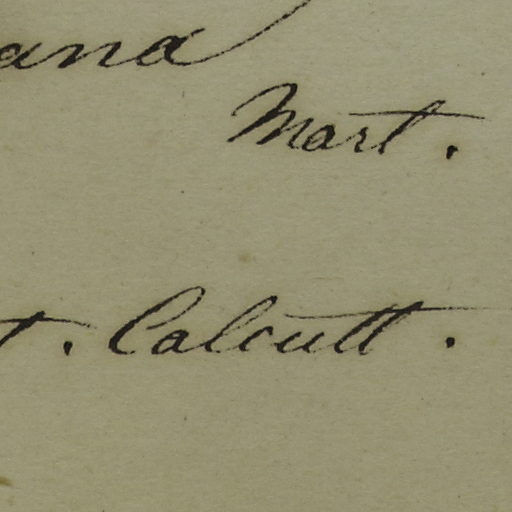 ana
Mart.
t. Calcutt.